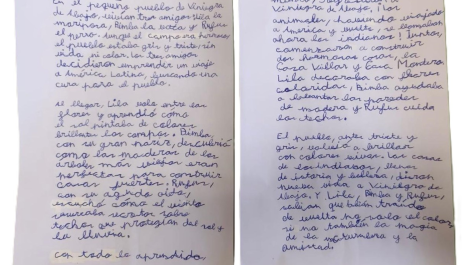 En el pequeño pueblo de Viniegra
de Abajo, vivían tres amigos: Lila la
mariposa, Bimba la vaca y Rufus
el perro. Aunque el campo era hermoso,
el pueblo estaba gris y triste, sin
vida ni color. Los tres amigos
decidieron emprender un viaje
a América Latina, buscando una
cura para el pueblo.
Al llegar, Lila voló entre las
flores y aprendió como
el sol pintaba de colores
brillantes los campos. Bimba,
con su gran nariz, descubrió
como las maderas de los
árboles más viejos eran
perfectas para construir
casas fuertes. Rufus,
con su agudo oído,
escuchó como el viento
susurraba secretos sobre
techos que protegían del sol y
la lluvia.
Con todo lo aprendido
Viniegra de Abajo. Los
animales, habiendo viajado
a América y vuelto, se llamaban
ahora los indianos! Juntos,
comenzaron a construir
dos hermosas casas, la
Casa Villar y Casa Montero.
Lila decoraba con flores
coloridas, Bimba ayudaba
a levantar las paredes
de madera y Rufus cuidó
los techos.
El pueblo, antes triste y
gris, volvió a brillar
con colores vivos. Las casas
de los indianos, llenas
de historia y belleza, dieron
nueva vida a Viniegra de
Abajo. Y Lila, Bimba y Rufus,
sabían que habían traído
de vuelta no solo el color,
si no también la magia
de la naturaleza y la
amistad.